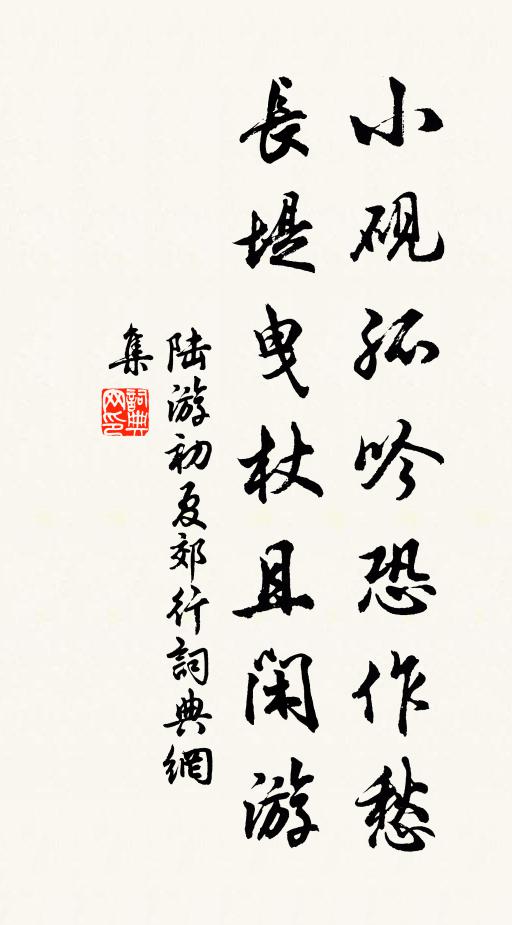 小硯孤吟恐作愁
長堤曳杖且閑游
陸游初夏郊行詞典網
集
詞典
网印